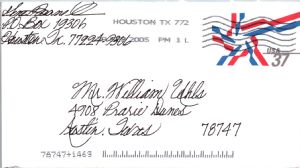 PO Box 19306
Houston Tx. 77224-9306
HOUSTON TX 772
2005 PM 1 L
USA 37
Mr. William Uhls
4908 Prarie Dunes
Austin, Texas 78747
78747+1463